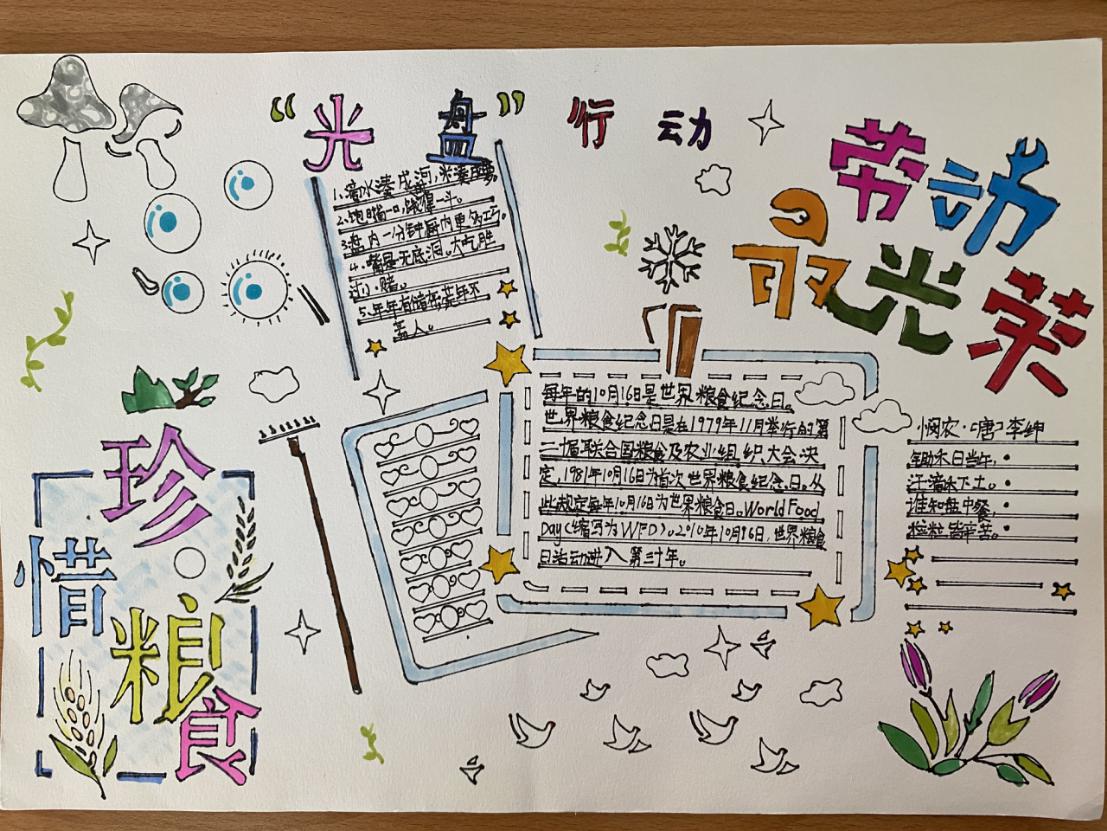 “光盘”行动
劳动
最光荣
1.滴水凑成河,米凑
2.饱
3.盘内一分钟厨内更多巧。
4.嘴是无底洞。大吃胜
过小赌。
5.年年有
盖人。
每年的10月16日是世界粮食纪念日。
世界粮食纪念日是在1979年11月举行的第
二十届联合国粮食及农业组织大会决
定,1981年10月16日为首次世界粮食纪念日。从
此规定每年10月16日为世界粮食日。World Food
Day(缩写为WFD)。2010年10月16日,世界粮食
日活动进入第三十年。
悯农·[唐]李绅
锄禾日当午,
汗滴禾下土。
谁知盘中餐,
粒粒皆辛苦。
珍
惜
粮
食